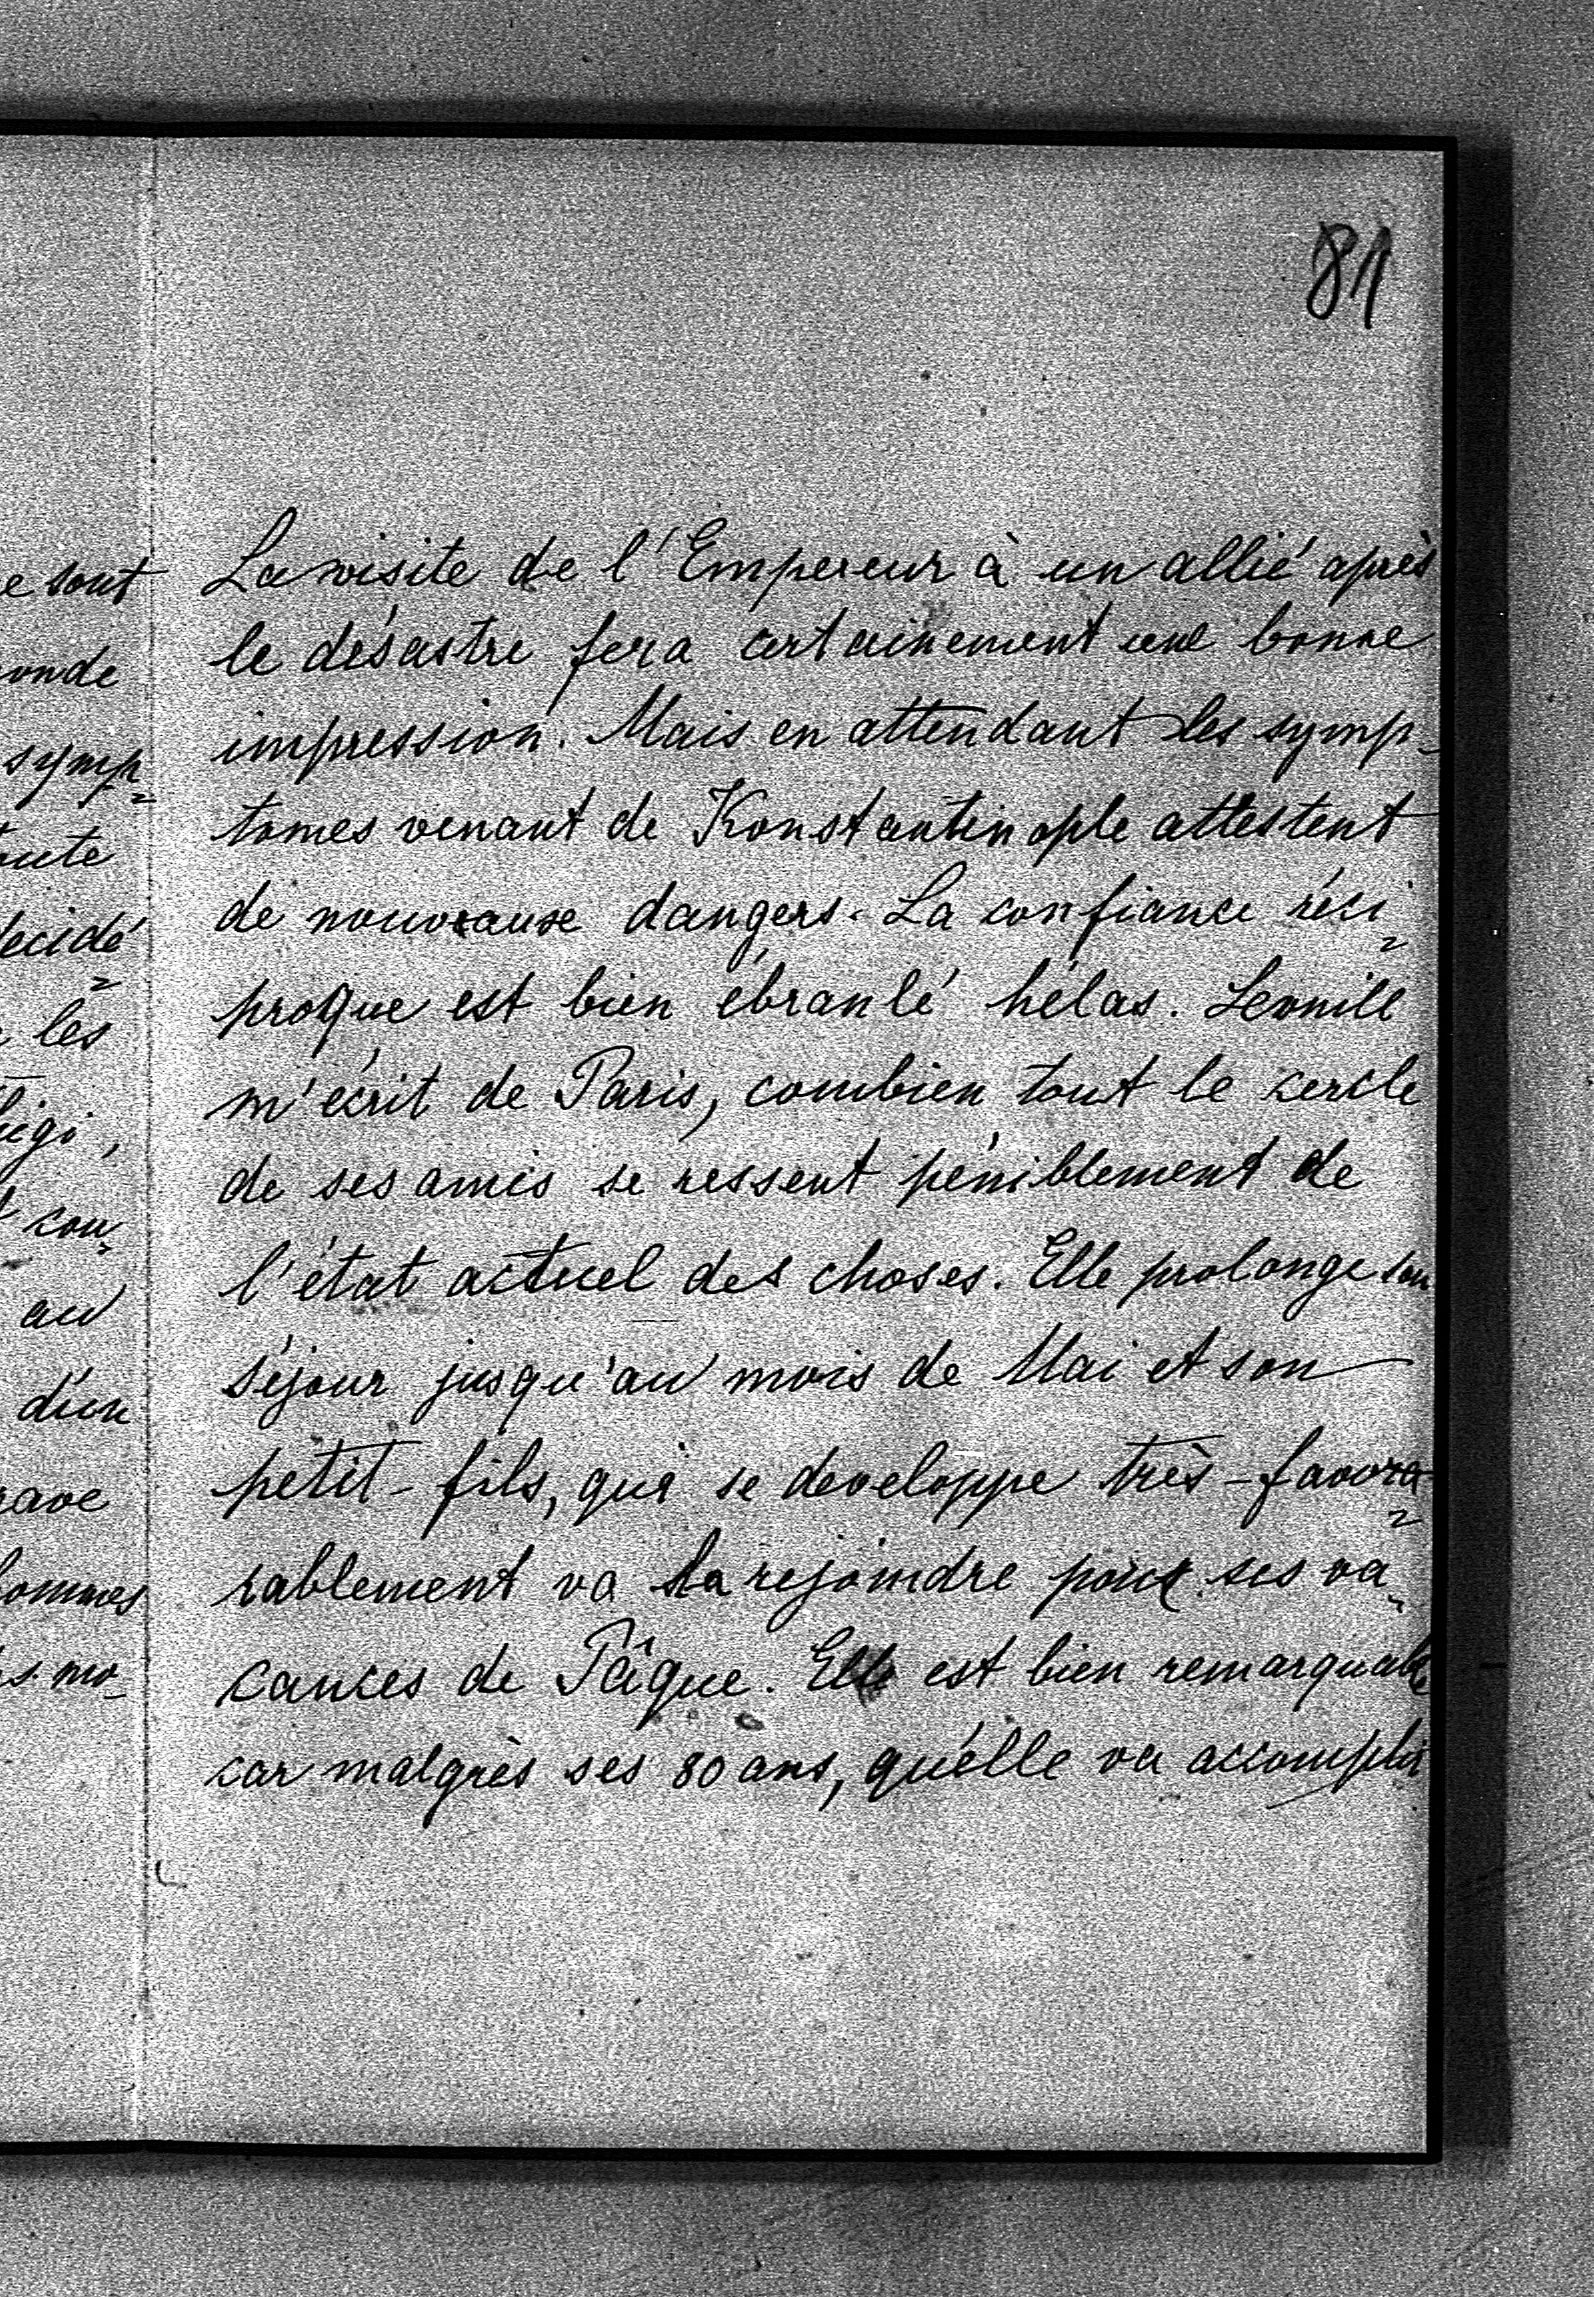 81
La visite de l'Empereur à un allié après
le désastre fera certainement une bonne
impression. Mais en attendant les symp-
tomes venant de Konstantinople attestent
de nouveause dangers. La confiance réci-
proque est bien ébranlé hélas. Leonill
m'écrit de Paris, combien tout le cercle
de ses amis se ressent péniblement de
l'état actuel des choses. Elle prolonge son
séjour jusqu'au mois de Mai et son
petit-fils, qui se developpe très-favora-
rablement va la rejoindre pour ses va-
cances de Pâque. Elle est bien remarquable
car malgrès ses 80 ans, qu'elle va accomplir
e sont
onde
symp-
oute
decidé-
les
con-
au
d'un
rave
hommes
mo-